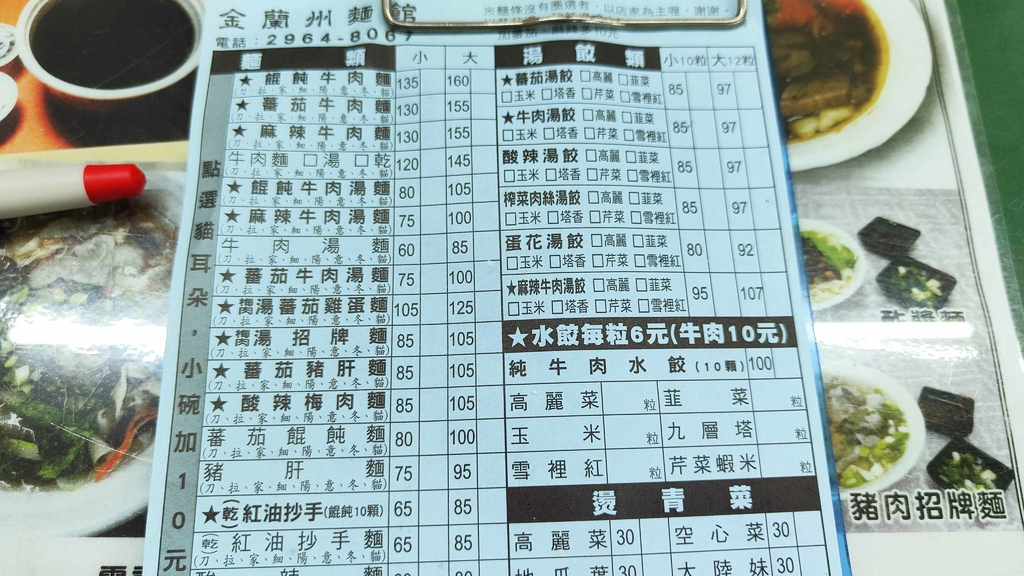 金蘭州麵館
電話：2964-8067
※麵條沒有圈選者，以店家為主喔，謝謝。
麵類 小 大
★餛飩牛肉麵 135 160
(刀、拉、家、細、陽、意、冬、貓)
★蕃茄牛肉麵 130 155
(刀、拉、家、細、陽、意、冬、貓)
★麻辣牛肉麵 130 155
(刀、拉、家、細、陽、意、冬、貓)
牛肉麵 □湯 □乾 120 145
(刀、拉、家、細、陽、意、冬、貓)
★餛飩牛肉湯麵 80 105
(刀、拉、家、細、陽、意、冬、貓)
★麻辣牛肉湯麵 75 100
(刀、拉、家、細、陽、意、冬、貓)
牛肉湯麵 60 85
(刀、拉、家、細、陽、意、冬、貓)
★蕃茄牛肉湯麵 75 100
(刀、拉、家、細、陽、意、冬、貓)
★雋湯蕃茄雞蛋麵 105 125
(刀、拉、家、細、陽、意、冬、貓)
★雋湯招牌麵 85 105
(刀、拉、家、細、陽、意、冬、貓)
★蕃茄豬肝麵 85 105
(刀、拉、家、細、陽、意、冬、貓)
★酸辣梅肉麵 85 105
(刀、拉、家、細、陽、意、冬、貓)
蕃茄餛飩麵 80 100
(刀、拉、家、細、陽、意、冬、貓)
豬肝麵 75 95
(刀、拉、家、細、陽、意、冬、貓)
★乾紅油抄手(餛飩10顆) 65 85
乾紅油抄手麵 65 85
(刀、拉、家、細、陽、意、冬、貓)
點選貓耳朵，小碗加10元
湯餃類 小10粒 大12粒
★蕃茄湯餃 □高麗 □韮菜 85 97
□玉米 □塔香 □芹菜 □雪裡紅
★牛肉湯餃 □高麗 □韮菜 85 97
□玉米 □塔香 □芹菜 □雪裡紅
酸辣湯餃 □高麗 □韮菜 85 97
□玉米 □塔香 □芹菜 □雪裡紅
榨菜肉絲湯餃 □高麗 □韮菜 85 97
□玉米 □塔香 □芹菜 □雪裡紅
蛋花湯餃 □高麗 □韮菜 80 92
□玉米 □塔香 □芹菜 □雪裡紅
★麻辣牛肉湯餃 □高麗 □韮菜 95 107
□玉米 □塔香 □芹菜 □雪裡紅
★水餃每粒6元(牛肉10元)
純牛肉水餃(10顆) 100
高麗菜 粒 韮菜 粒
玉米 粒 九層塔 粒
雪裡紅 粒 芹菜蝦米 粒
燙青菜
高麗菜 30 空心菜 30
地瓜葉 30 大陸妹 30
豬肉招牌麵